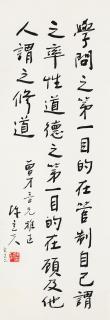 學問之第一目的在管制自己謂
之率性道德之第一目的在顧及他
人謂之修道
吾兄雅正
陳立夫